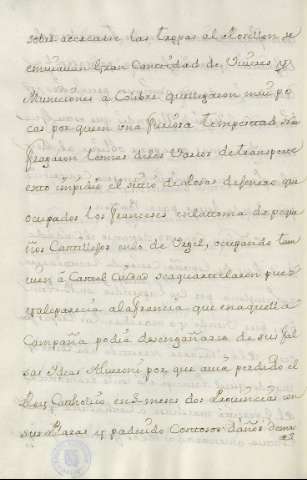 sobre acercarse las tropas al Rosellon se
embiaron gran Cantidad de Viures y
Municiones a Colibre que llegaron muy po
cas por quem una furiosa tempestad nau
fragaron tomas delos Vasos de transporte
esto impidio el sitio de
ocupados los franceses en la toma de peque
ños Castillejos en de Vrgil, ocupando tam
uien á Castel Ciudad se aquartelaron pues
ya leparecia ala francia que en aquella
Campaña podia desengañarse de sus fal
sas Ideas Alueoni por que auia perdido el
Rey Catholico en 3 meses dos Prouincias con
sus Plazas y padecido Costosos daños dema